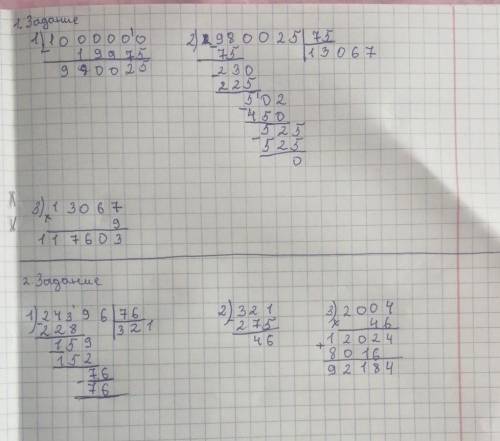 1 Задание
1) 1000000
- 19975
980025
2) 980025 | 75
- 75 | 13067
230
- 225
502
- 450
525
- 525
0
3) 13067
x 9
117603
2 Задание
1) 24396 | 76
- 228 | 321
159
152
76
- 76
2) 321
- 275
46
3) 2004
x 46
+ 12024
8016
92184